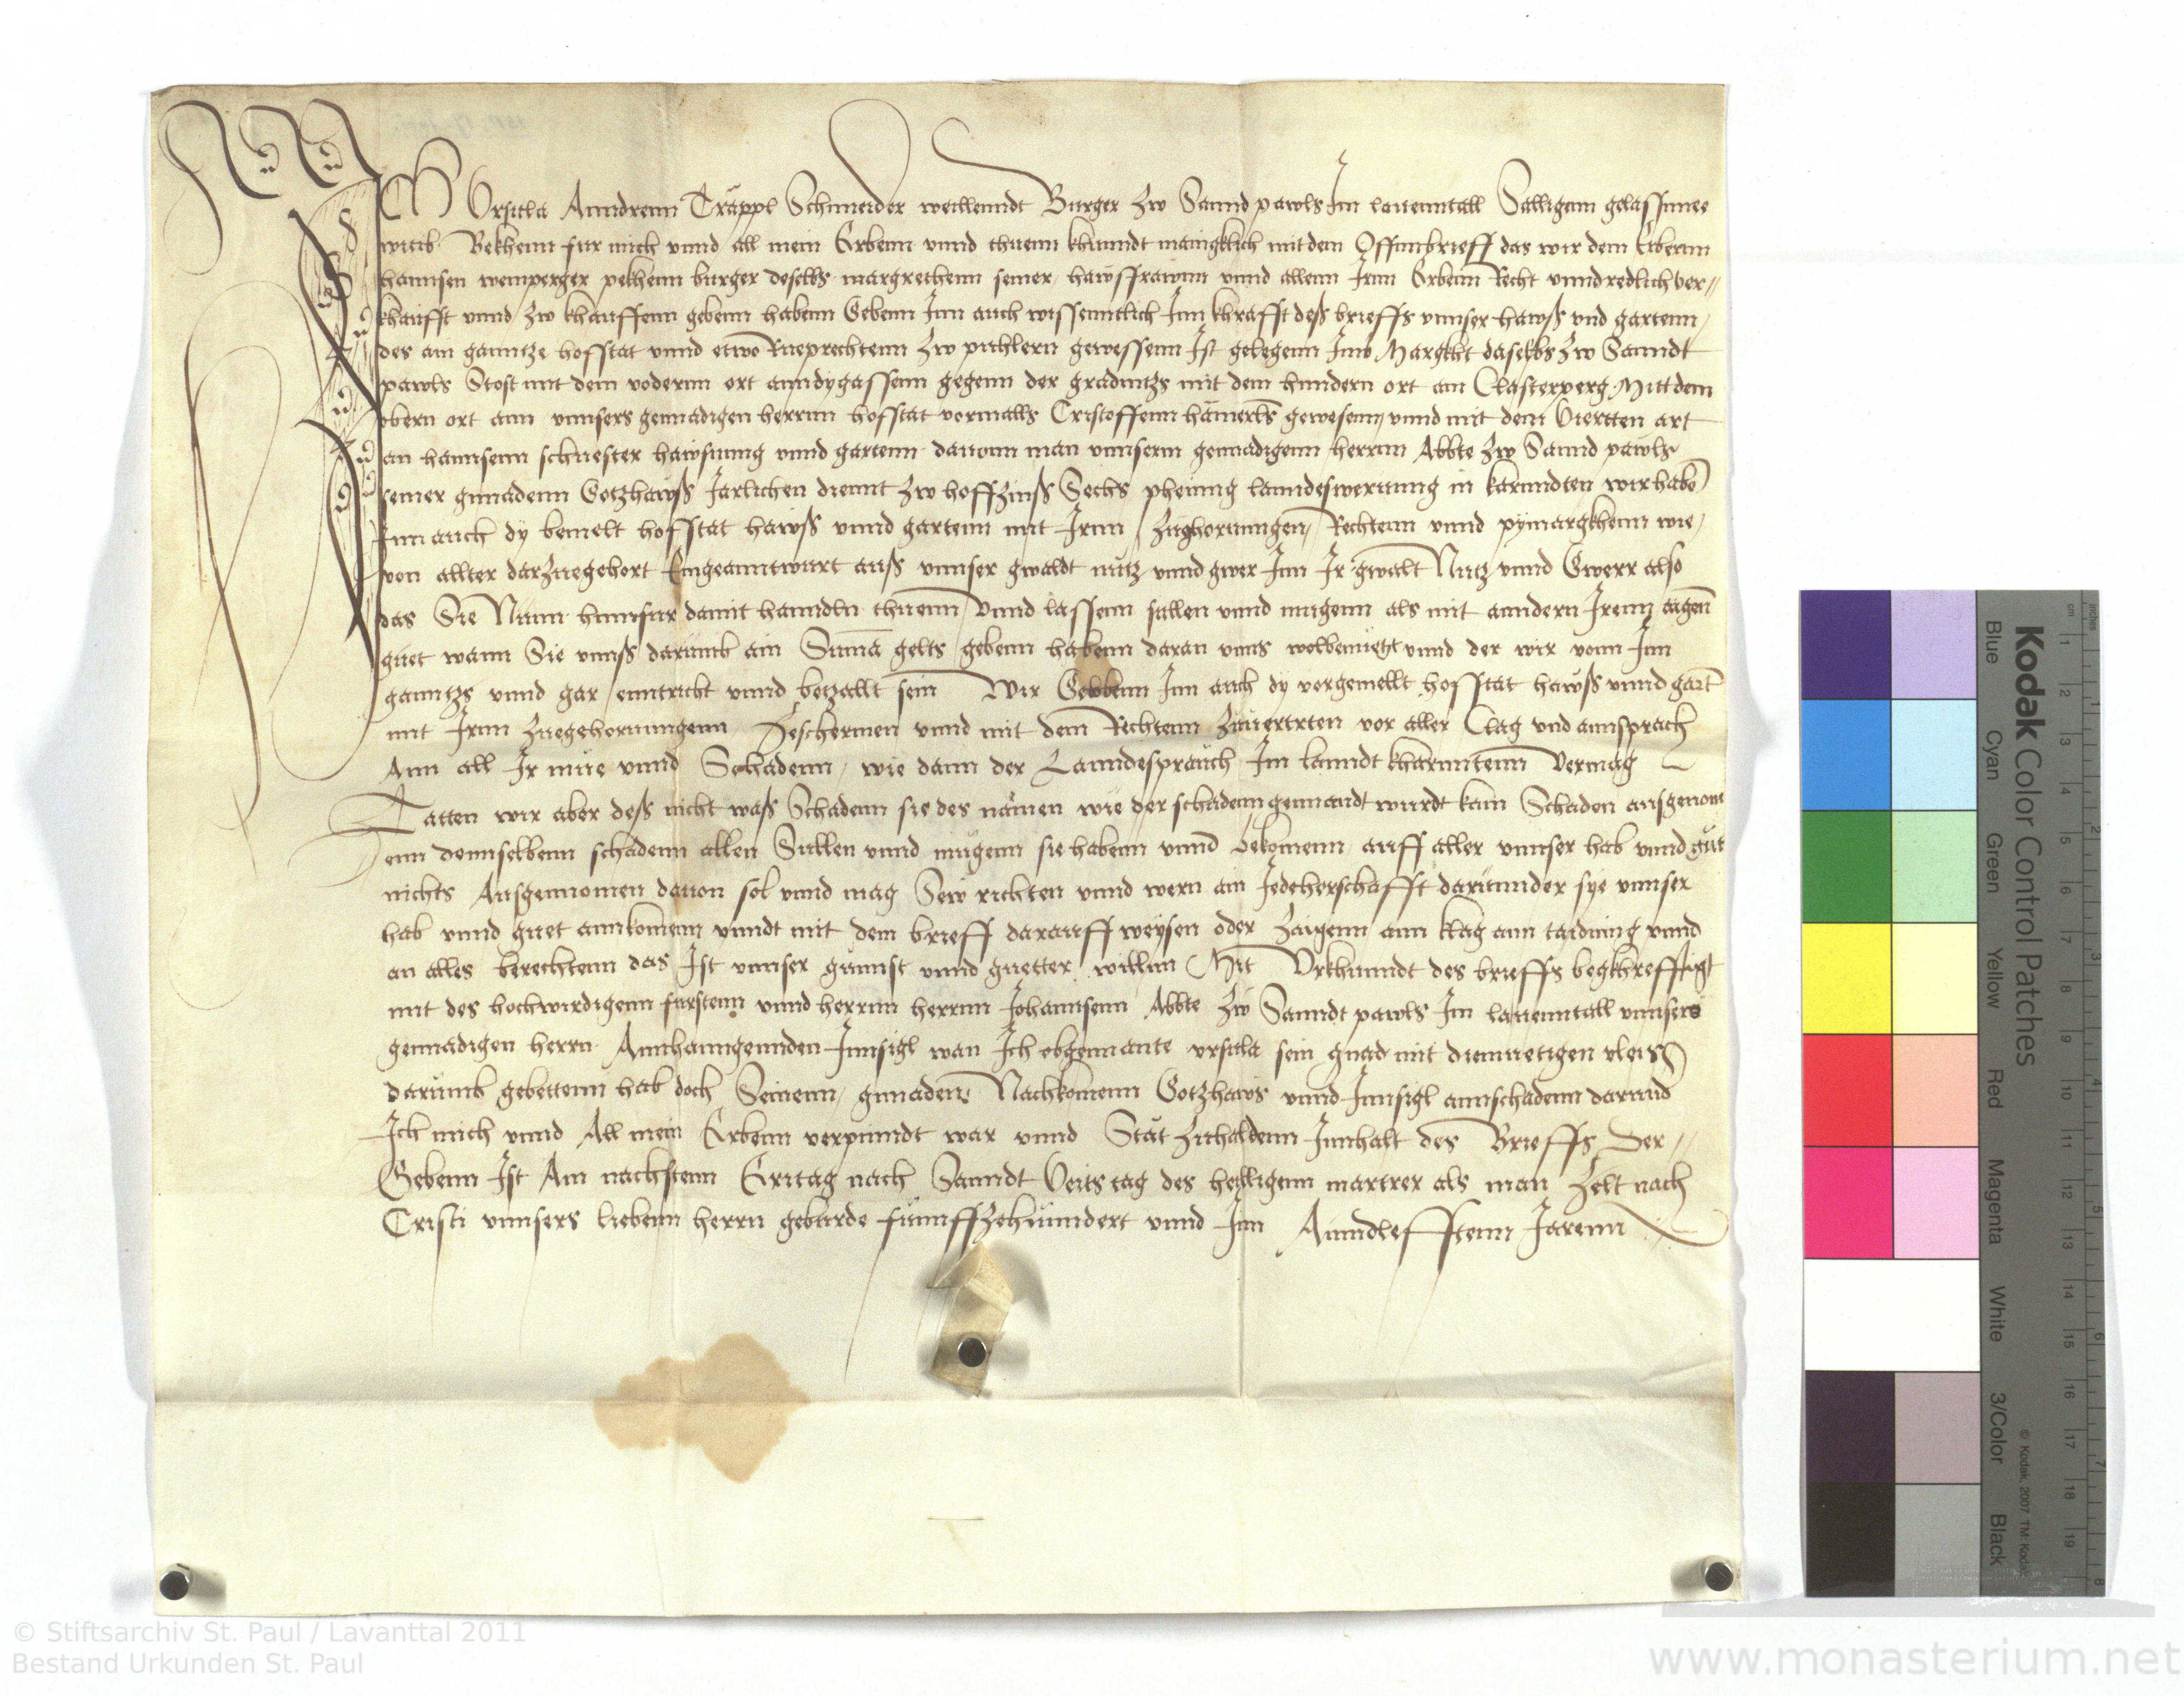 ICh Vrsula Anndrenn Träppl Schneider weillenndt Burger zw Sannd pawls Im lauenntall Sälligenn gelassnnee
wittib Bekhenn fur mich vnnd all mein Erbenn vnnd thuenn khunndt mänigklich mit dem Offnnbrieff das wir dem Erbernn
hannsen wemperger pekhenn burger deselbs margrethenn seiner hawsfrawnn vnnd allenn Irnn Erbenn Recht vnnd redlich ver//
khaufft vnnd zw khauffenn gebenn habenn Gebenn Inn auch wissenntlich Inn khrafft deß brieffs vnnser hawß vnd gartenn
des ain ganntze hofstat vnnd etwo Rueprechtenn zw puhlern gewessenn Ist gelegenn Imb Margkht daselbs zw Sanndt
pawls Stost mit dem vodernn ort anndygassenn gegenn der gradnntzs mit dem hindern ort an Clasterperg Mitt dem
obern ort ann vnnsers gennadigen herrnn hofstat vormalls Cristoffenn hämerls gewesenn vnnd mit dem Viertten art
an hannsenn schuester hawsnung vnnd gartenn dauonn man vnnserm gennadigenn herrnn Abbte zw Sannd pawls
seiner gnnadenn Gotzhawß Järlichen diennt zw hoffzinß Sechs phening lanndeswerung in karnndten wir habn
Inn auch dy bemelt hofstat hawß vnnd gartenn mit Irnn zughorunngen Rechtenn vnnd pymargkhenn wie
von allter darzuegehort Eingeanntwurt auß vnnser gwaldt nutz vnnd gwer Inn Ir gwalt Nutz vnnd Gwerr also
das Sie Nunn hinnfur damit hanndln thuenn vnnd lassenn sullen vnnd mugenn als mit anndern Irenn aigen
guet wann Sie vnnß darumb ain Suma gelts gebenn habenn daran vnns wolbenuegt vnnd der wir vonn Inn
ganntzs vnnd gar enntricht vnnd betzallt sein Wir Gebbenn Inn auch dy vorgemellt hofstat hawß vnnd gartn
mit Irnn zuegehorunngenn zeschermen vnnd mit dem Rechtenn zuuertrten vor aller Clag vnd annsprach
Ann all Ir müe vnnd Schadenn wie dann der Lanndesprauch Im lanndt kharnntenn Vermag
Tatten wir aber deß nicht waß Schadenn sie des nämen wie der schadenn gennandt wurdt kain Schaden ausgenom
enn dennselbenn schadenn allen Sullen vnnd mugenn sie habenn vnnd bekomenn auff aller vnnser hab vnnd gut
nichts Ausgennomen dauon sol vnnd mag Sew richten vnnd wern ain Iedeherschafft darunnder sye vnnser
hab vnnd guet annkomenn vnndt mit dem brieff darauff weysen oder zaigenn ann klag ann taidning vnnd
an alles berechtenn das Ist vnnser gunnst vnnd guetter willnn Mit Vrkhunndt des brieffs begkhrefftigt
mit des hochwirdigenn furstenn vnnd herrnn herrnn Johannsenn Abbte zw Sanndt pawls Im lauenntall vnnsers
gennadigen herrn Annhanngennden Innsigl wan Ich obgennante vrsula sein gnad mit diemuetigen vleis
darumb gebettenn hab doch Seinenn gnnadenn Nachkomenn Gotzhaws vnnd Innsigl annschadenn darund
Ich mich vnnd All mein Erbenn verpinndt war vnnd Stät zuhaldenn Innhalt des Brieffs Der //
Gebenn Ist Am nachstenn Eritag nach Sanndt Veits tag des heylligenn martrer als man zelt nach
Cristi vnnsers liebenn herrn geburde fünffzehünndert vnnd Im Ainndlefftenn Jarenn
Kodak Color Control Patches
Blue Cyan Green Yellow Red Magenta White 3/Color Black
© Kodak, 2007 TM: Kodak
© Stiftsarchiv St. Paul / Lavanttal 2011
Bestand Urkunden St. Paul
www.monasterium.net